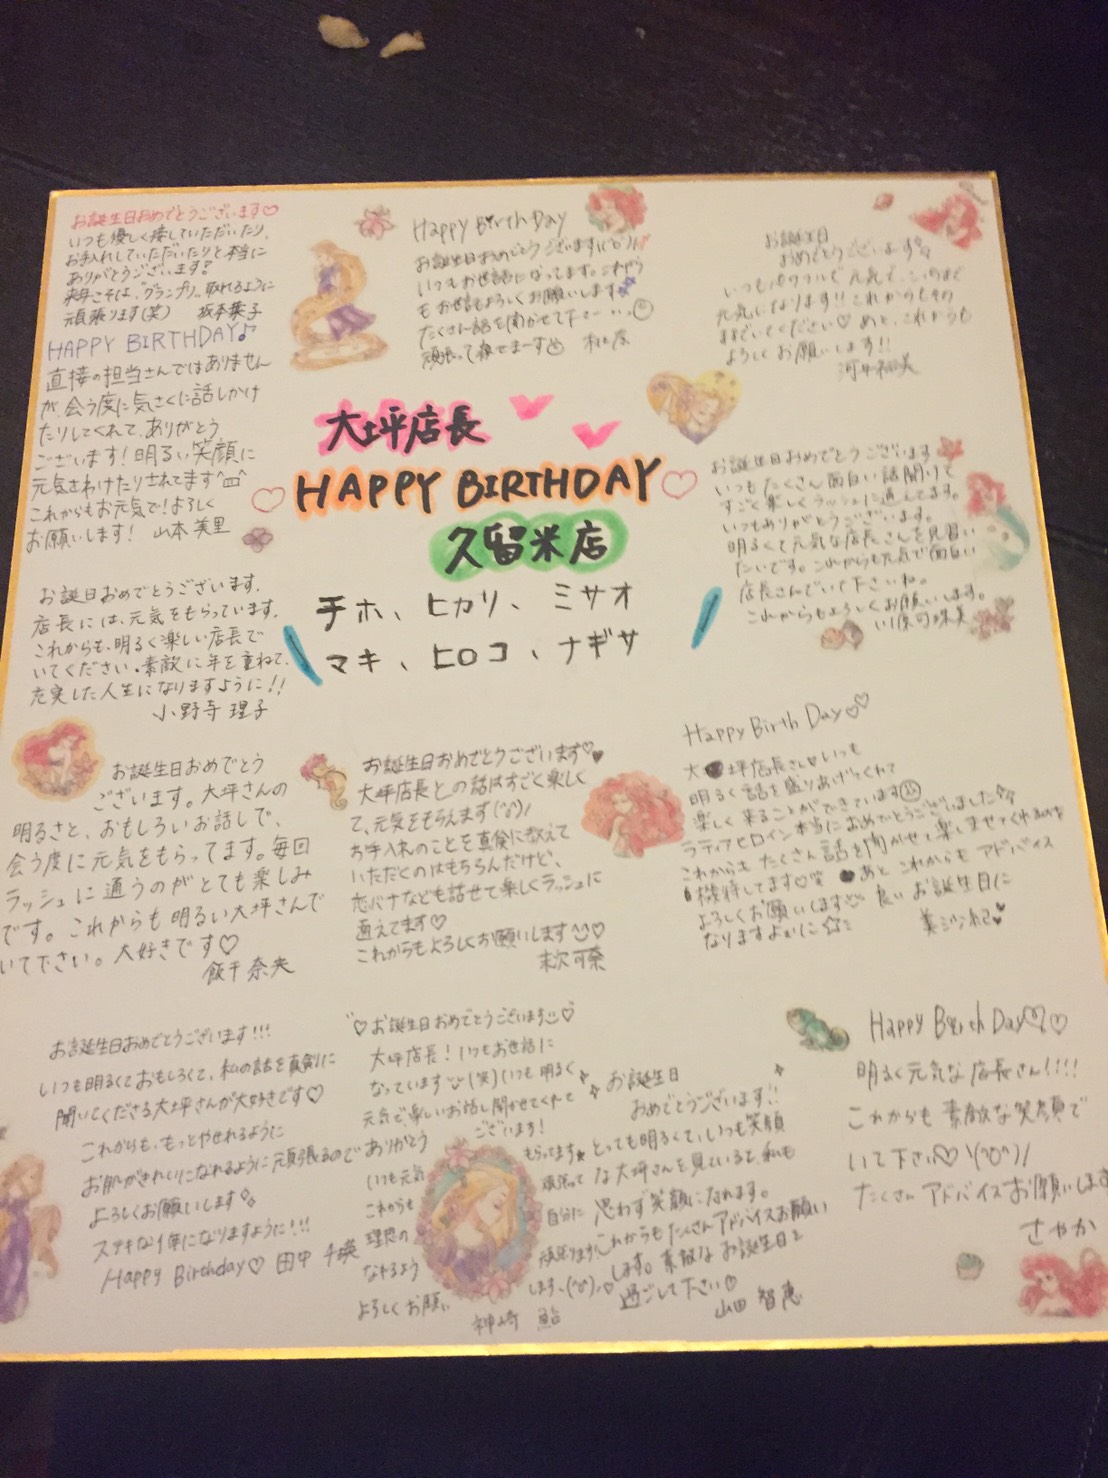 お誕生日おめでとうございます♡
いつも優しく接していただいたり、
お手入れしていただいたりと本当に
ありがとうございます!
来年こそは、グランプリ。取れるように
頑張ります(笑) 坂本葉子
HAPPY BIRTHDAY♪
直接の担当さんではありません
が、会う度に気さくに話しかけ
たりしてくれて、ありがとう
ございます!明るい笑顔に
元気さわけたりされてます^▽^
これからもお元気で!よろしく
お願いします! 山本 美里
お誕日おめでとうございます。
店長には、元気をもらっています。
これからも、明るく楽しい店長で
いてください。素敵に年を重ねて、
充実した人生になりますように!!
小野寺 理子
お誕生日おめでとう
ございます。大坪さんの
明るさと、おもしろいお話しで、
会う度に元気をもらってます。毎回
ラッシュに通うのがとても楽しみ
です。これからも明るい大坪さんで
いて下さい。大好きです♡
飯干 奈央
お誕生日おめでとうございます!!!
いつも明るくておもしろくて、私の話を真剣に
聞いてくださる大坪さんが大好きです♡
これからも、もっとやせれるように
お肌がきれいになれるように頑張るので
よろしくお願いします
ステキな1年になりますように!!!
Happy Birthday♡ 田中 千瑛
Happy Birth Day
お誕生日おめでとうございます
いつもお世話になってます。これから
もお世話よろしくお願いします
たくさん話を聞かせて下さーい。
頑張って痩せまーす
大坪店長
HAPPY BIRTHDAY♡
久留米店
チホ、ヒカリ、ミサオ
マキ、ヒロコ、ナギサ
お誕生日おめでとうございます♥
大坪店長との話はすごく楽しく
て、元気をもらえます(^o^)/
お手入れのことを真剣に教えて
いただくのはもちろんだけど、
恋バナなども話せて楽しくラッシュに
通えてます♡
これからもよろしくお願いします♡
末次可奈
♡お誕生日おめでとうございます♡
大坪店長!いつもお世話に
なっています(笑)いつも明るく
元気で楽しいお話し聞かせてくれて
ありがとう
ございます!
いつも元気
もらってます★
これからも
頑張って
理想の
自分に
なれるよう
頑張ります!
よろしくお願い
します、(^o^)♡
神崎 鮎
お誕生日
おめでとうございます!!
とっても明るくて、いつも笑顔
な大坪さんを見ていると、私も
思わず笑顔になれます。
これからもたくさんアドバイスお願い
します。素敵なお誕生日を
過ごして下さい♡
山田 智恵
お誕生日
おめでとうございます
いつもパワフルで元気で、
元気になります!! これからもその
ままでいてください♡ あと、これからも
よろしくお願いします!!
お誕生日おめでとうございます
いつもたくさん面白い話聞けて
すごく楽しくラッシュに通えてます。
いつもありがとうございます。
明るくて元気な店長さんを見習い
たいです。これからも元気で面白い
店長さんでいて下さいね。
これからもよろしくお願いします。
Happy Birth Day♡♡
大坪店長さん♡いつも
明るく話を盛りあげてくれて
楽しく来ることができています
ラティアヒロイン本当におめでとうございました
これからもたくさん話を聞かせて楽しませてくれるのを
期待してます♡ あと、これからもアドバイス
よろしくお願いします 良いお誕生日に
なりますように☆
Happy Birth Day♡♡
明るく元気な店長さん!!!!
これからも素敵な笑顔で
いて下さい♡\(^o^)/
たくさんアドバイスお願いします
さやか